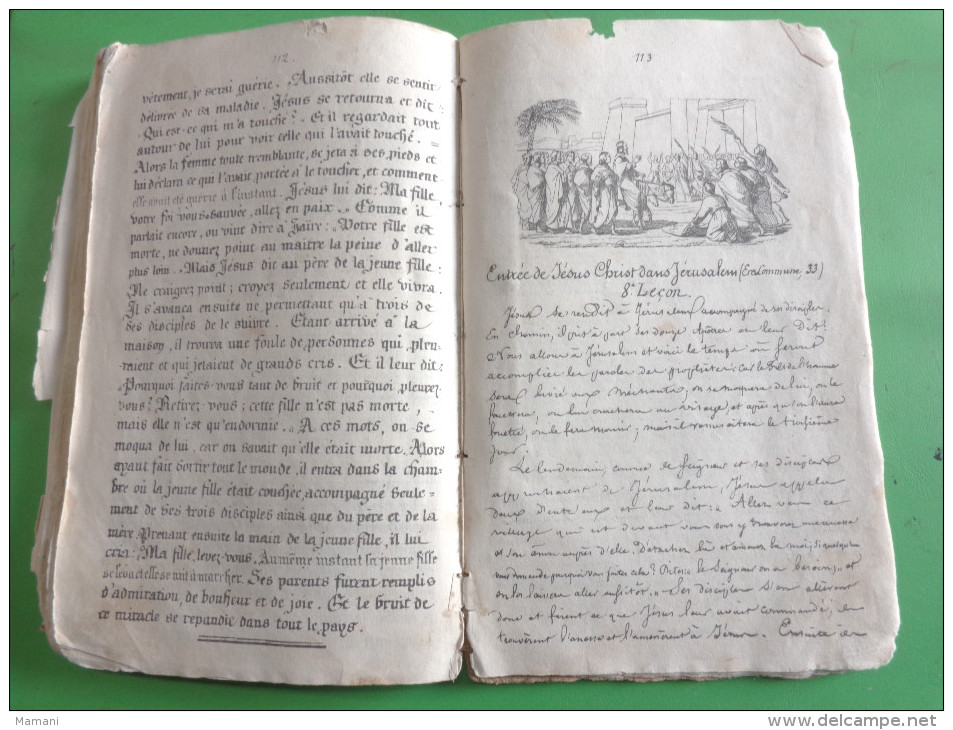 112.
vêtement, je serai guérie. „ Aussitôt elle se sentit
délivrée de sa maladie. Jésus se retourna et dit:
„Qui est-ce qui m'a touché?„ Et il regardait tout
autour de lui pour voir celle qui l'avait touché. =
Alors la femme toute tremblante, se jeta à ses pieds et
lui déclara ce qui l'avait portée à le toucher, et comment
elle avait été guérie à l'instant. Jésus lui dit: „Ma fille,
votre foi vous a sauvée, allez en paix. „ Comme il
parlait encore, on vint dire à Jaïre: „ Votre fille est
morte, ne donnez point au maître la peine d'aller
plus loin. „ Mais Jésus dit au père de la jeune fille:
„Ne craignez point; croyez seulement et elle vivra.
Il s'avança ensuite ne permettant qu'à trois de
ses disciples de le suivre. Étant arrivé à la
maison, il trouva une foule de personnes qui, pleu-
raient et qui jetaient de grands cris. Et il leur dit:
„Pourquoi faites-vous tant de bruit et pourquoi, pleurez-
vous? Retirez-vous; cette fille n'est pas morte,
mais elle n'est qu'endormie. „ A ces mots, on se
moqua de lui, car on savait qu'elle était morte. Alors
ayant fait sortir tout le monde, il entra dans la cham-
bre où la jeune fille était couchée, accompagné seule=
ment de ses trois disciples ainsi que du père et de la
mère. Prenant ensuite la main de la jeune fille, il lui
cria: „Ma fille, levez-vous. Au même instant la jeune fille
se leva et elle se mit à marcher. Ses parents furent remplis
d'admiration, de bonheur et de joie. Et le bruit de
ce miracle se répandit dans tout le pays.
113
Entrée de Jésus Christ dans Jérusalem (Ère Commune, 33)
8e Leçon.
Jésus se rendit à Jérusalem accompagné de ses disciples.
En chemin, il prit à part ses douze Apôtres et leur dit:
„Nous allons à Jérusalem et voici le temps où seront
accomplies les paroles des prophètes: car le fils de l'homme
sera livré aux méchants, on se moquera de lui, on le
fouettera, on lui crachera au visage, et après qu'on l'aura
fouetté, on le fera mourir; mais il ressuscitera le troisième
jour.
Le lendemain, comme le Seigneur et ses disciples
approchaient de Jérusalem, Jésus appela
deux d'entre eux et leur dit: „ Allez dans ce
village qui est devant vous vous y trouverez une ânesse
et son ânon auprès d'elle. Détachez-la et amenez-la moi; si quelqu'un
vous demande pourquoi vous faites cela? Dites: le Seigneur en a besoin, et
on les laissera aller aussitôt. „ Ses disciples s'en allèrent
donc et firent ce que Jésus leur avait commandé; ils
trouvèrent l'ânesse et l'amenèrent à Jésus. Ensuite
Mamani
www.delcampe.net